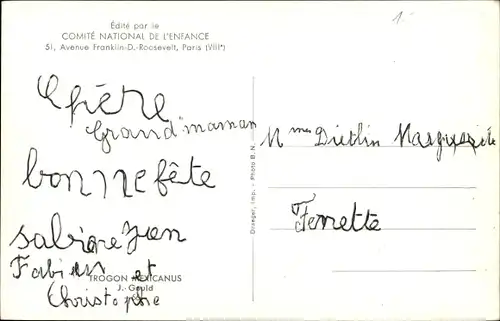 1.-
Édité par le
COMITÉ NATIONAL DE L'ENFANCE
51, Avenue Franklin-D.-Roosevelt, Paris (VIIIe)
Chère
Grand maman
bonne fête
Fabien et
Christophe
TROGON MEXICANUS
J. Gould
Draeger, Imp. - Photo B. N.
Mme Dietlin Marguerite
Ferrette